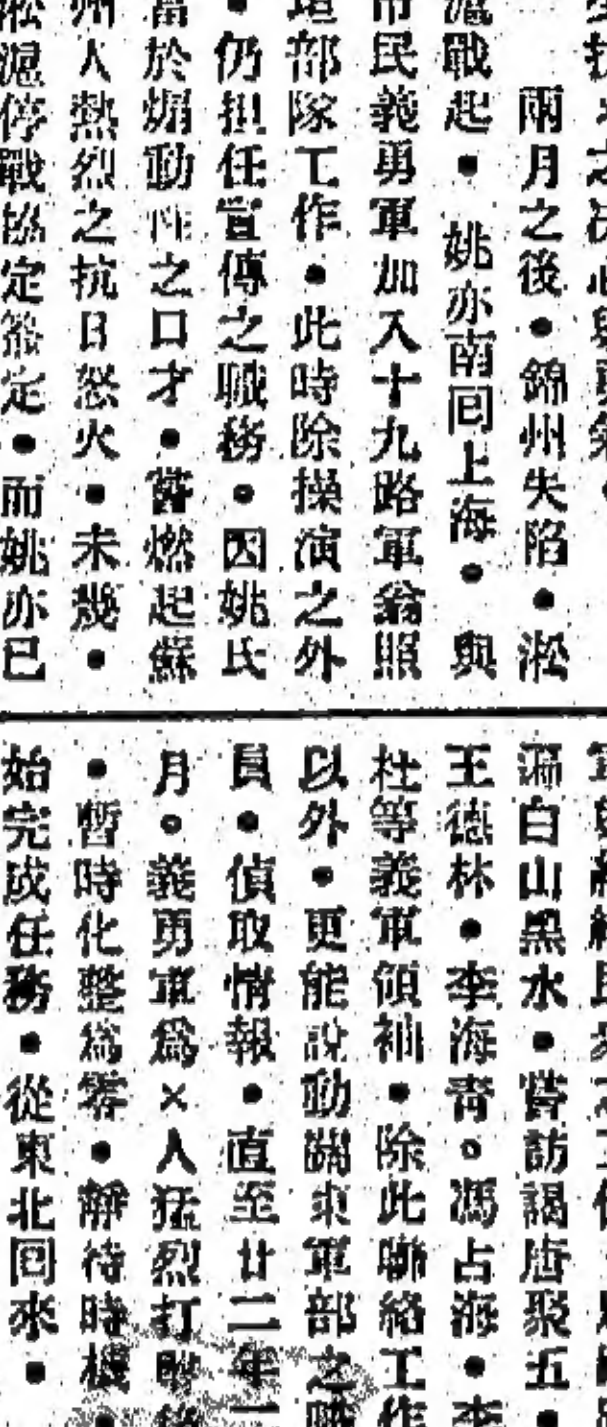 兩月之後●錦州失陷●淞
滬戰起●姚亦南回上海●與
市民義勇軍加入十九路軍翁照
垣部隊工作●此時除操演之外
●仍担任宣傳之職務●因姚氏
富於煽動性之口才●嘗燃起蘇
州人熱烈之抗日怒火●未幾●
淞滬停戰協定簽定●而姚亦已
遍白山黑水●嘗訪謁唐聚五●
王德林●李海青。馮占海●李
杜等義軍領袖●除此聯絡工作
以外●更能說動關東軍部之職
員●偵取情報●直至廿二年
月。義勇軍爲×人猛烈打
●暫時化整爲零●靜待時機●
始完成任務●從東北回來●